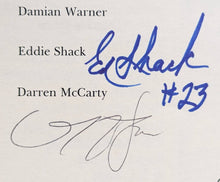 Damian Warner
Eddie Shack
Ed Shack
#23
Darren McCarty